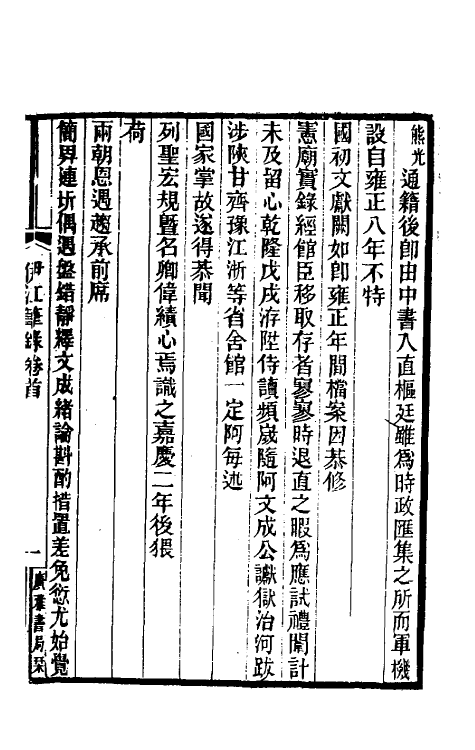 熊光通籍後卽由中書入直樞廷雖爲時政匯集之所而軍機
設自雍正八年不特
國初文獻闕如卽雍正年間檔案因恭修
憲廟實錄經館臣移取存者寥寥時退直之暇爲應試禮闈計
未及留心乾隆戊戌洊陞侍讀頻歲隨阿文成公讞獄治河跋
涉陝甘齊豫江浙等省舍館一定阿每述
國家掌故遂得恭聞
列聖宏規曁名卿偉績心焉識之嘉慶二年後猥
荷
兩朝恩遇趨承前席
簡畀連圻偶遇盤錯靜釋文成緒論斟酌措置差免愆尤始覺
伊江筆錄卷首
一
廣雅書局栞